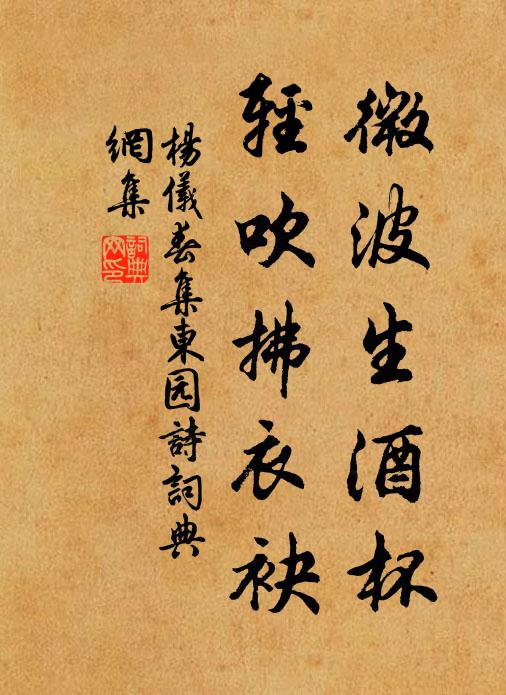 微波生酒杯
輕吹拂衣袂
楊儀春集東园詩詞典
網集
詞典
网印